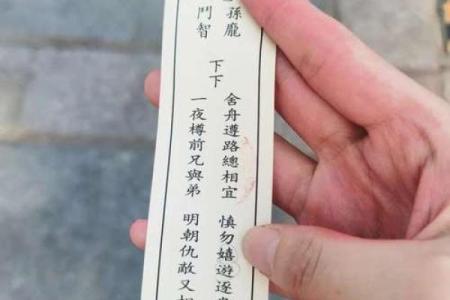 孫龐
鬥智
下下
舍舟遵路總相宜
慎勿嬉遊逐
一夜樽前兄與弟
明朝仇敵又